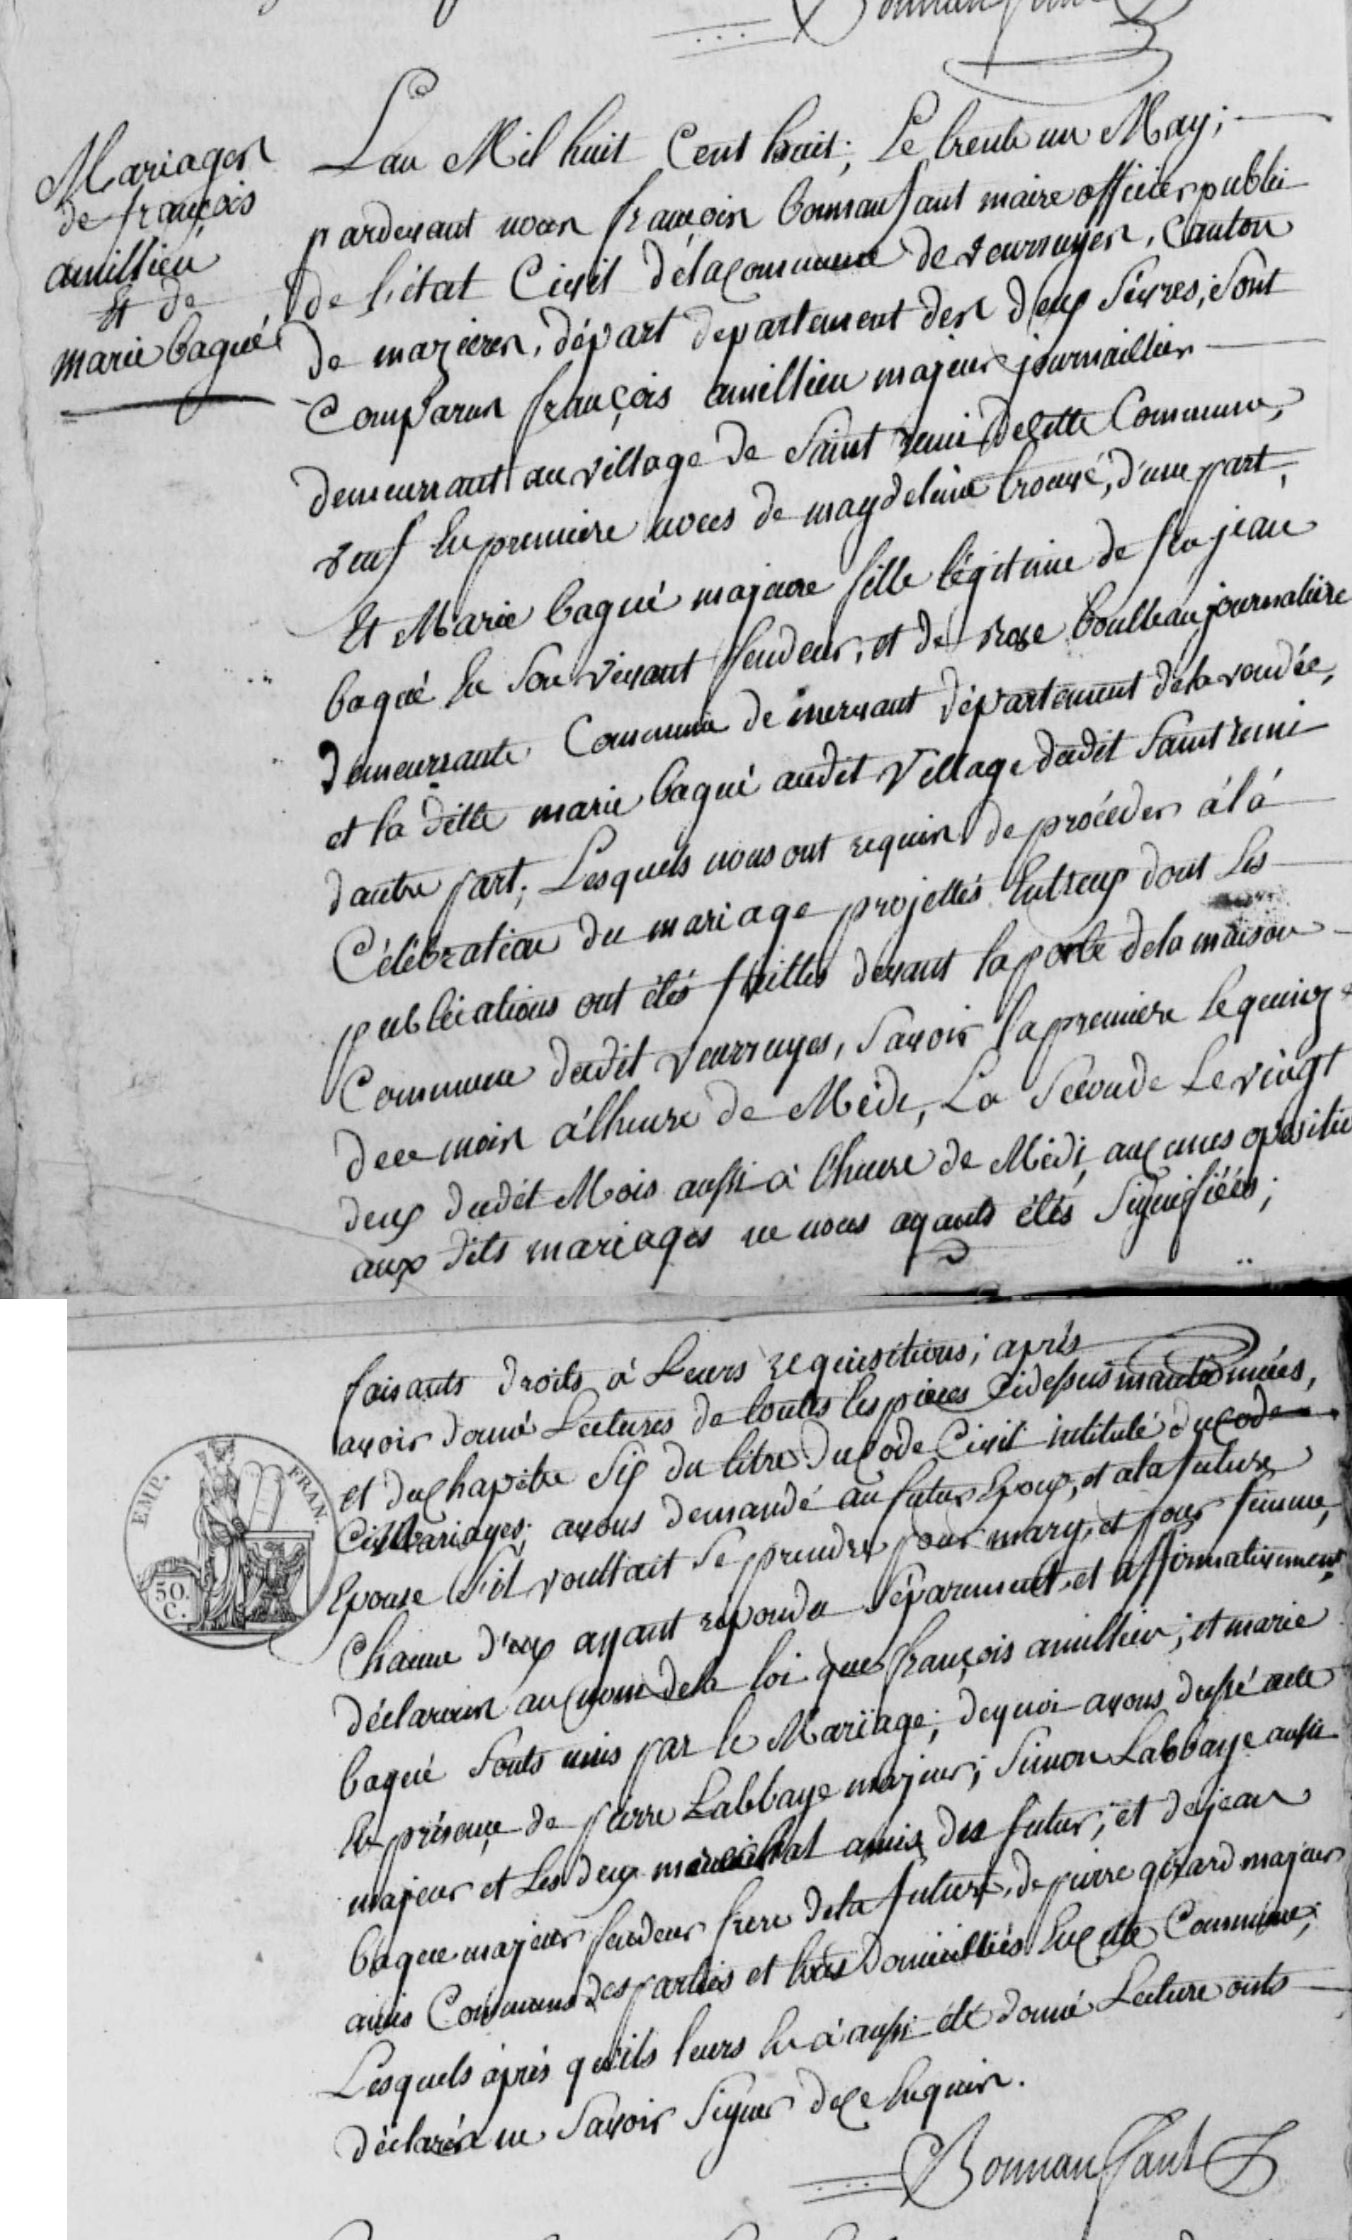 Mariages
de françois
amillieu
Et de
marie baqué
Lan Mil huit Cent huit; Le trente un May;
pardevant nous françois bonnanfant maire officier public
de l'état Civil de la Commune de verruyes, Canton
de mazieres, départ departement des deux Sèvres, Sont
Comparus françois amillieu majeur journaillier
demeurant au village de Saint remi de cette Commune,
veuf En premiere noces de magdelaine trouvé, d'une part,
Et Marie baqué majeure fille légitime de feu jean
baqué En Son vivant fendeur, et de rose boulleau journaliere
demeurrante Commune de mervant département de la vendée,
et la ditte marie baqué audit Village dudit Saint remi
dautre part; Lesquels nous ont requis de procéder á lá
Célébration du mariage projettés Entreux dont Les
publications ont étés faittes devant la porte de la maison
Commune dudit verruyes, Savoir la premiere le quinz
du mois á lheure de Midi, La Seconde Le vingt
deux dudit Mois aussi à l'heure de Midi, aucunes opositio
aux dits mariages ne nous ayants étés Signifiées;
faisants droits à Leurs requisitions; aprés
avoir donné Lectures de touttes les pieces Cidessus mantionnées,
et du Chapitre Six du titre du Code Civil intitulé du Code
Mariages; avons demandé au futur Epoux, et a la future
Epouse S'il voullait Se prendre pour mary, et pour femme,
Chacun d'eux ayant repondu Séparement et affirmativement,
déclarons au nom de la loi que françois amillieu, et marie
baqué Sonts unis par le Mariage; dequoi avons dressé acte
En présence de pierre Labbaye majeur; Simon Labbaye aussi
majeur et Les deux amis du futur; et de jean
baque majeur fendeur frere de la future, de pierre girard majeur
amis Communs des parties et tous Domicilliés En cette Commune,
Lesquels áprés qu'ils leurs En á aussi été donné Lecture onts
déclarés ne Savoir Signer de Ce Enquis.
Bonnanfant
EMP. FRAN.
50.
C.